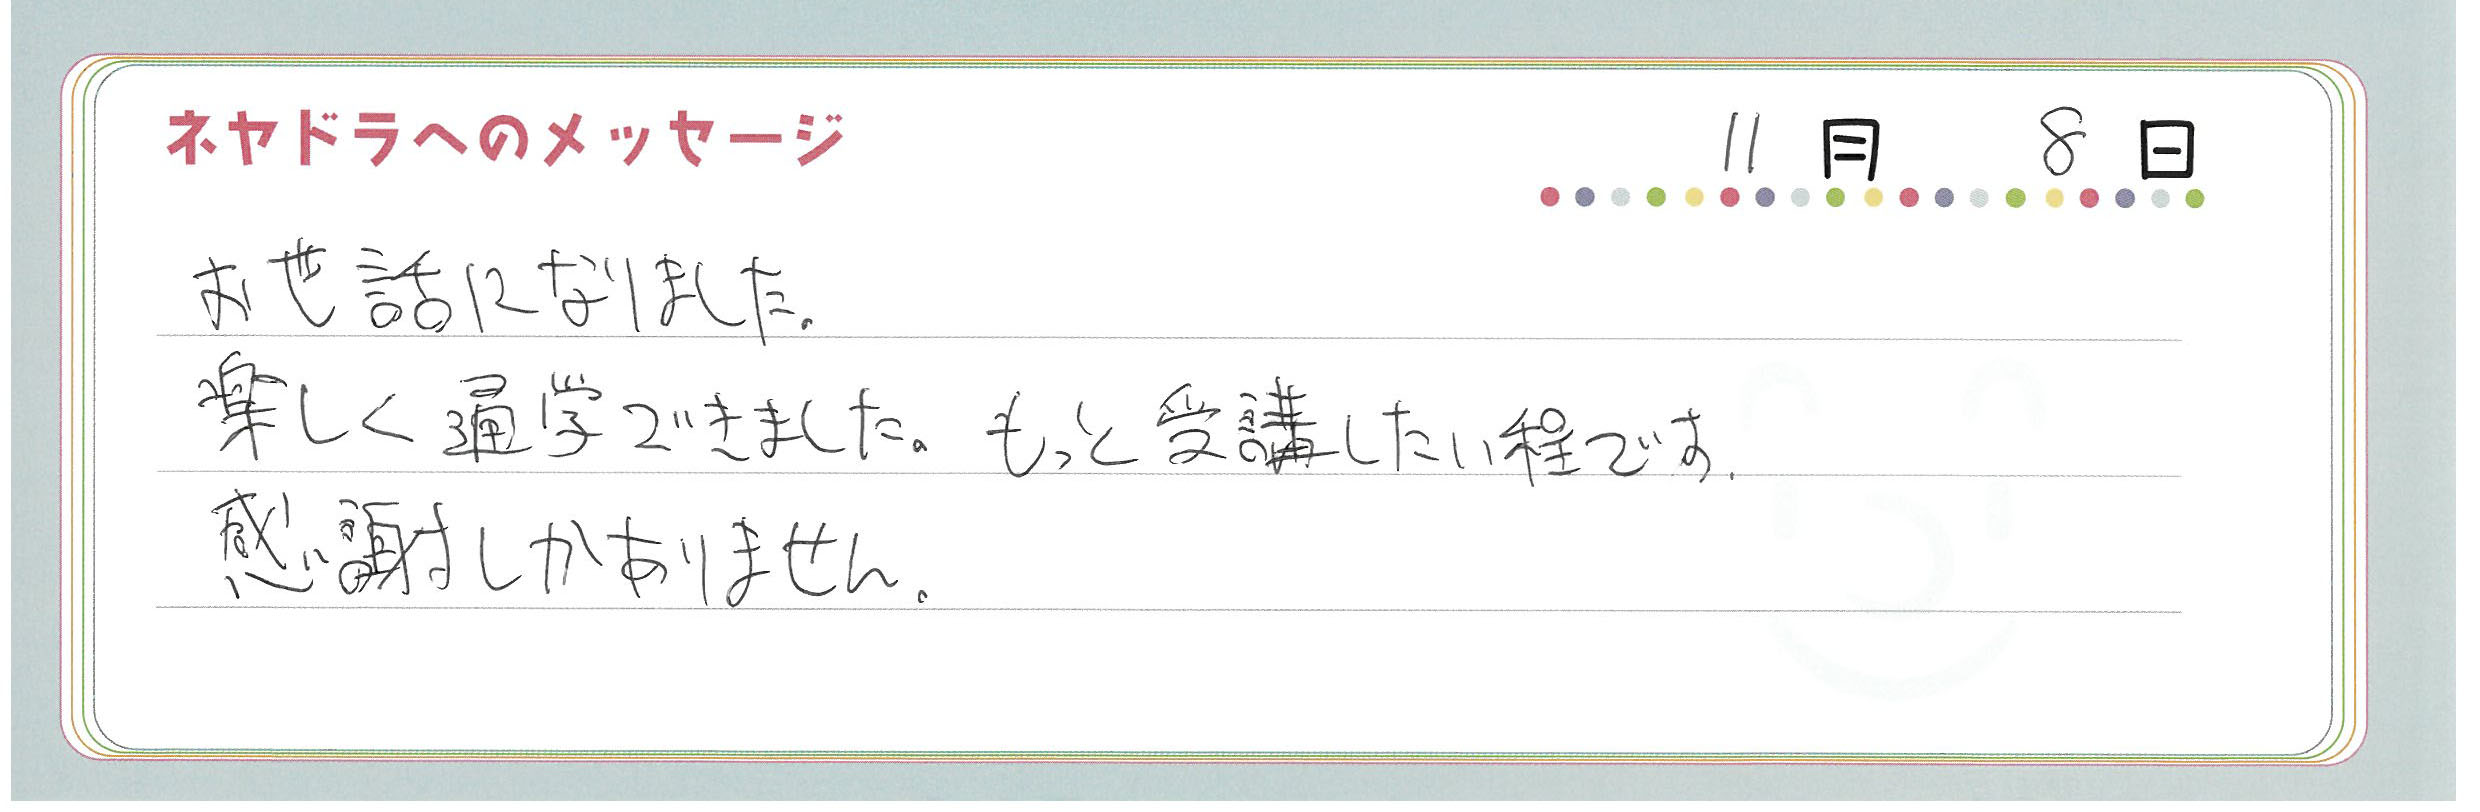 ネヤドラへのメッセージ
11月 8日
お世話になりました。
楽しく通学できました。もっと受講したい程です.
感謝しかありません。